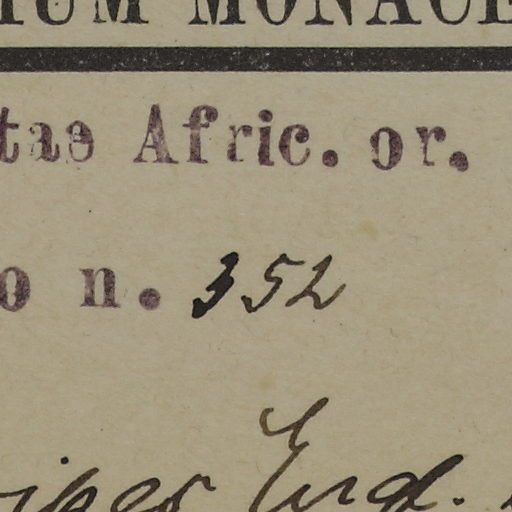 IUM MONACE
tae Afric. or.
o n. 352
iper Engl.